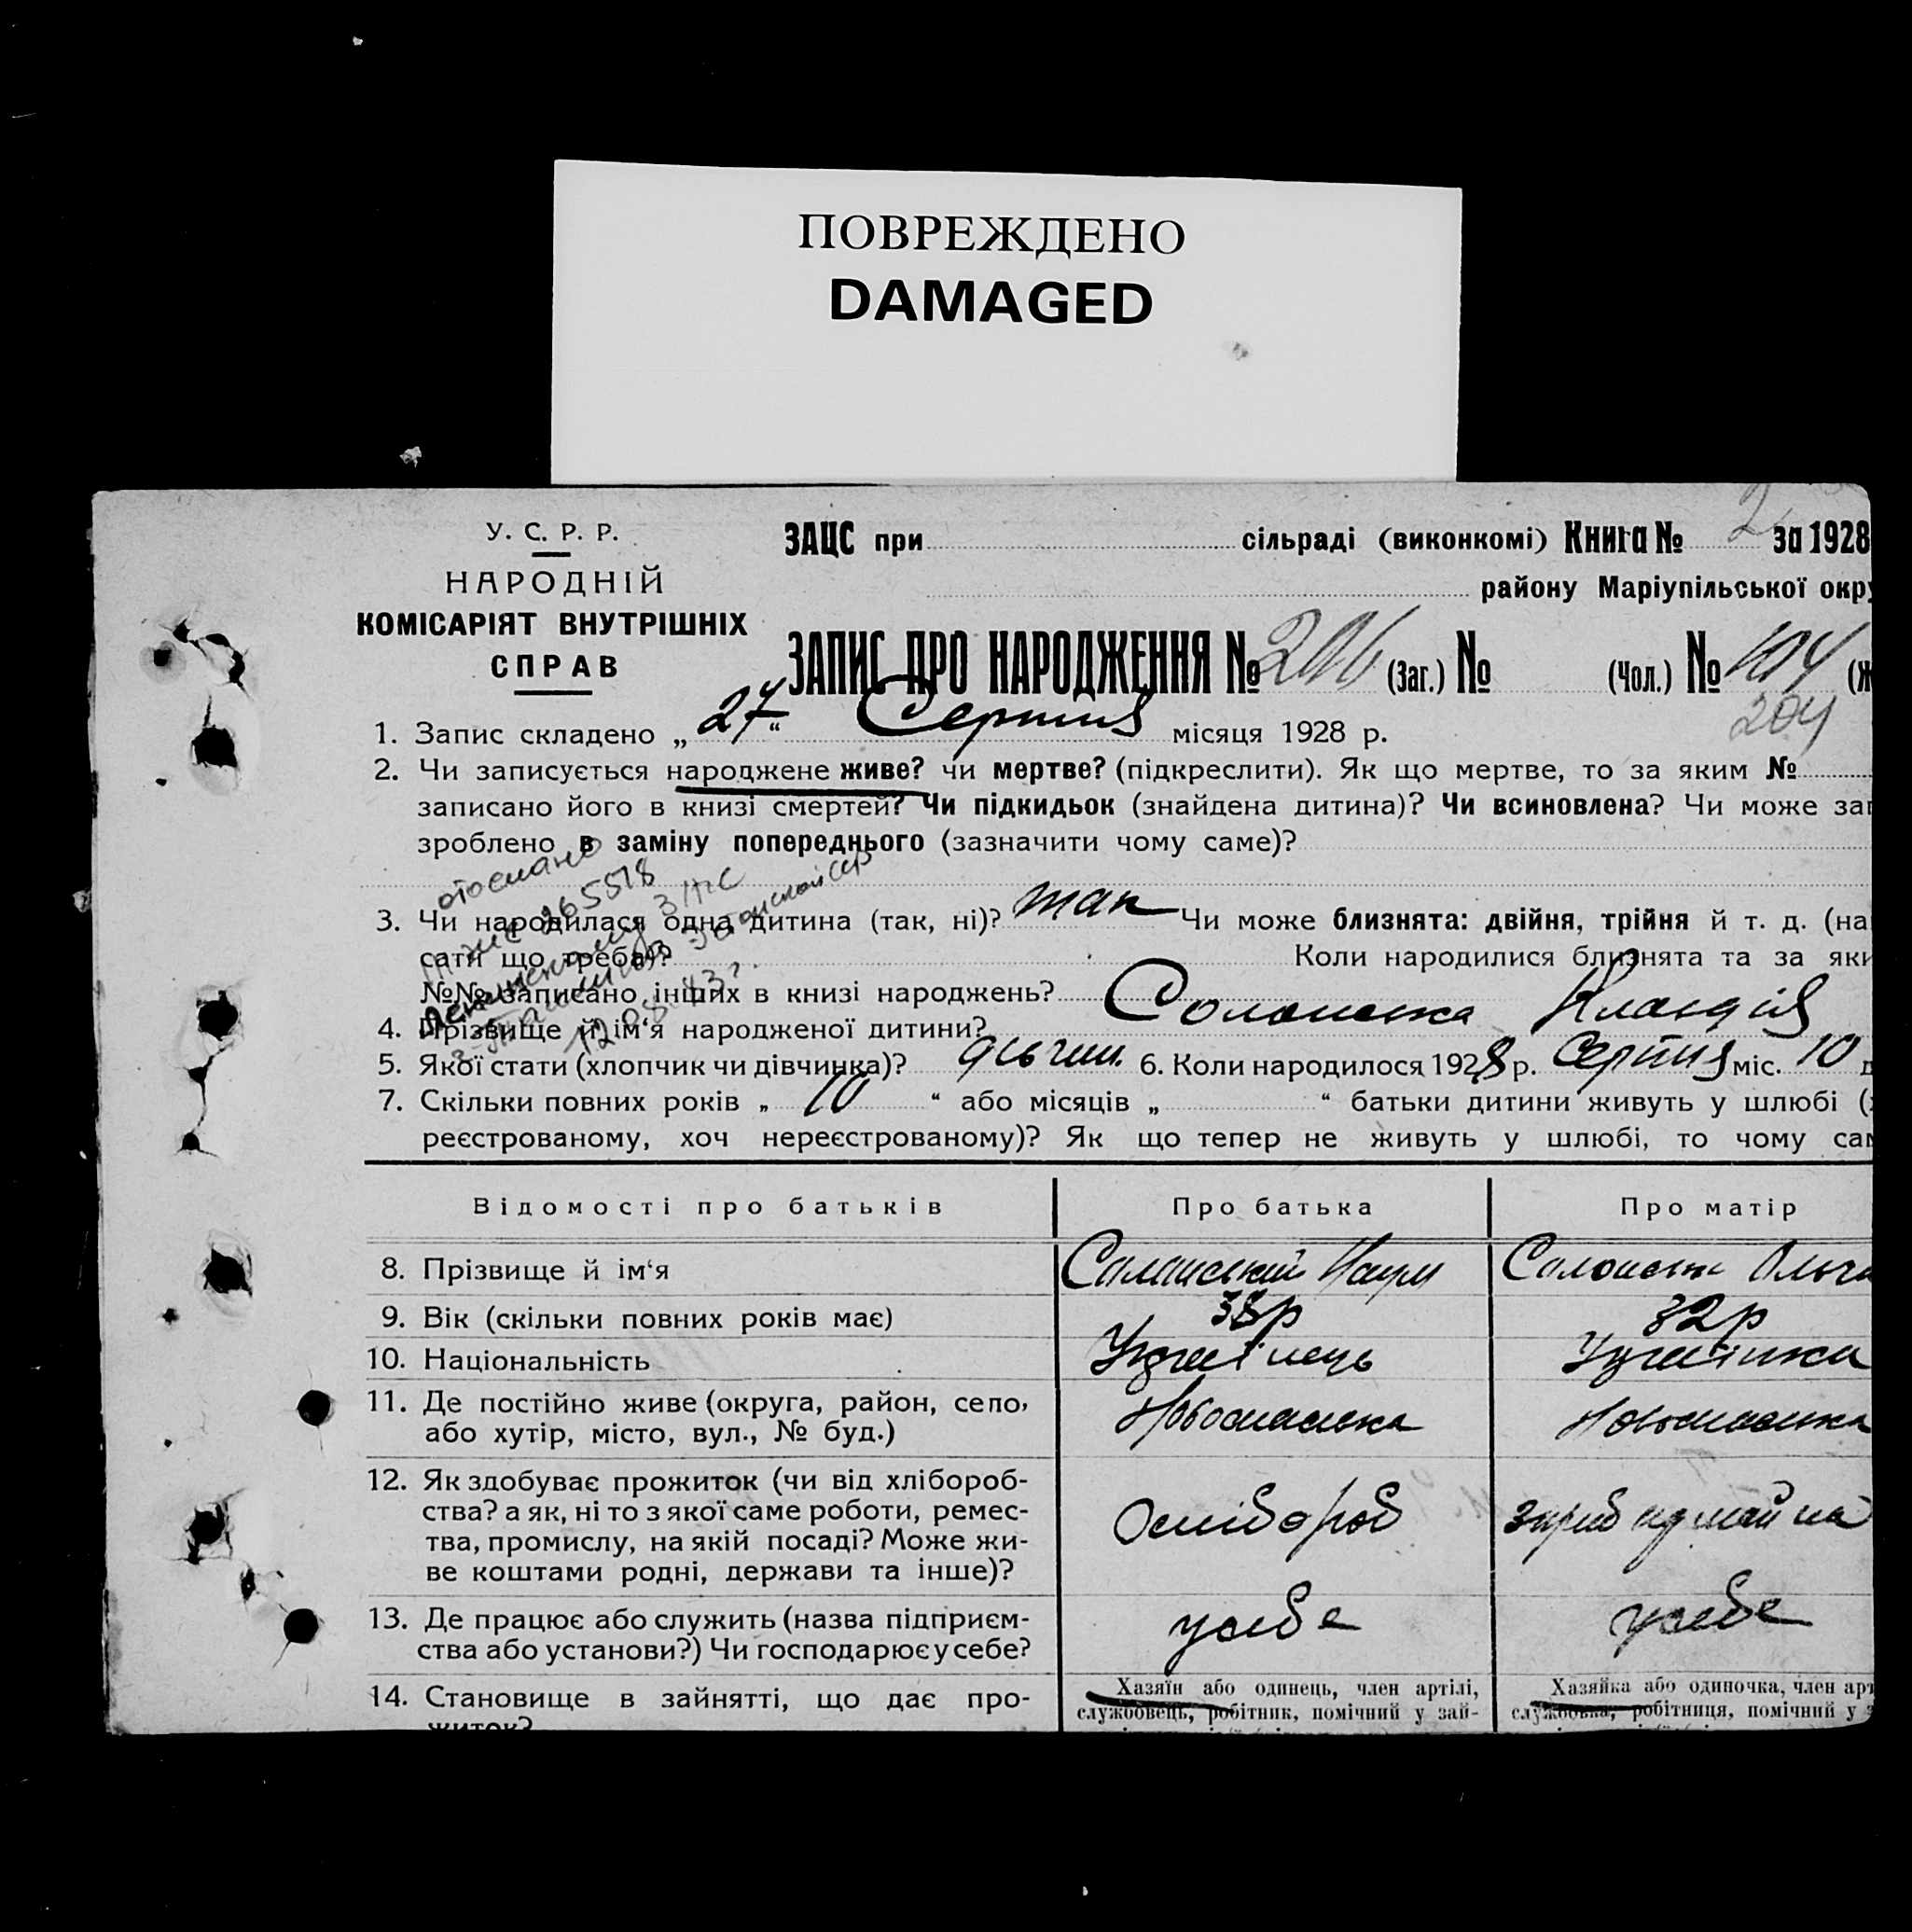 ПОВРЕЖДЕНО
DAMAGED
У. С. Р. Р.
НАРОДНІЙ
КОМІСАРІЯТ ВНУТРІШНІХ
СПРАВ
ЗАЦС при сільраді (виконкомі) Книга № 2 за 1928
району Маріупільської окру
ЗАПИС ПРО НАРОДЖЕННЯ № 206 (Заг.) № (Чол.) № 104 (Ж
204
1. Запис складено „ 27 “ Серпня місяця 1928 р.
2. Чи записується народжене живе? чи мертве? (підкреслити). Як що мертве, то за яким №
записано його в книзі смертей? Чи підкидьок (знайдена дитина)? Чи всиновлена? Чи може зап
зроблено в заміну попереднього (зазначити чому саме)?
3. Чи народилася одна дитина (так, ні)? так Чи може близнята: двійня, трійня й т. д. (на
сати що треба)? Коли народилися близнята та за яки
№№ записано інших в книзі народжень?
4. Прізвище й ім‘я народженої дитини? Клавдія
5. Якої стати (хлопчик чи дівчинка)? дівчин. 6. Коли народилося 1928 р. Серпня міс. 10 д
7. Скільки повних років „ 10 “ або місяців „ “ батьки дитини живуть у шлюбі (х
реєстрованому, хоч нереєстрованому)? Як що тепер не живуть у шлюбі, то чому сам
Відомості про батьків Про батька Про матір
8. Прізвище й ім‘я Наум Ольга
9. Вік (скільки повних років має) 38р 32р
10. Національність Українець Українка
11. Де постійно живе (округа, район, село,
або хутір, місто, вул., № буд.) Новоспаська Новоспаська
12. Як здобуває прожиток (чи від хлібороб-
ства? а як, ні то з якої саме роботи, ремес-
тва, промислу, на якій посаді? Може жи-
ве коштами родні, держави та інше)?
13. Де працює або служить (назва підприєм-
ства або установи?) Чи господарює у себе? у себе у себе
14. Становище в зайнятті, що дає про-
житок?
Хазяїн або одинець, член артілі,
службовець, робітник, помічний у зай-
Хазяйка або одиночка, член арт
службовка, робітниця, помічний у з